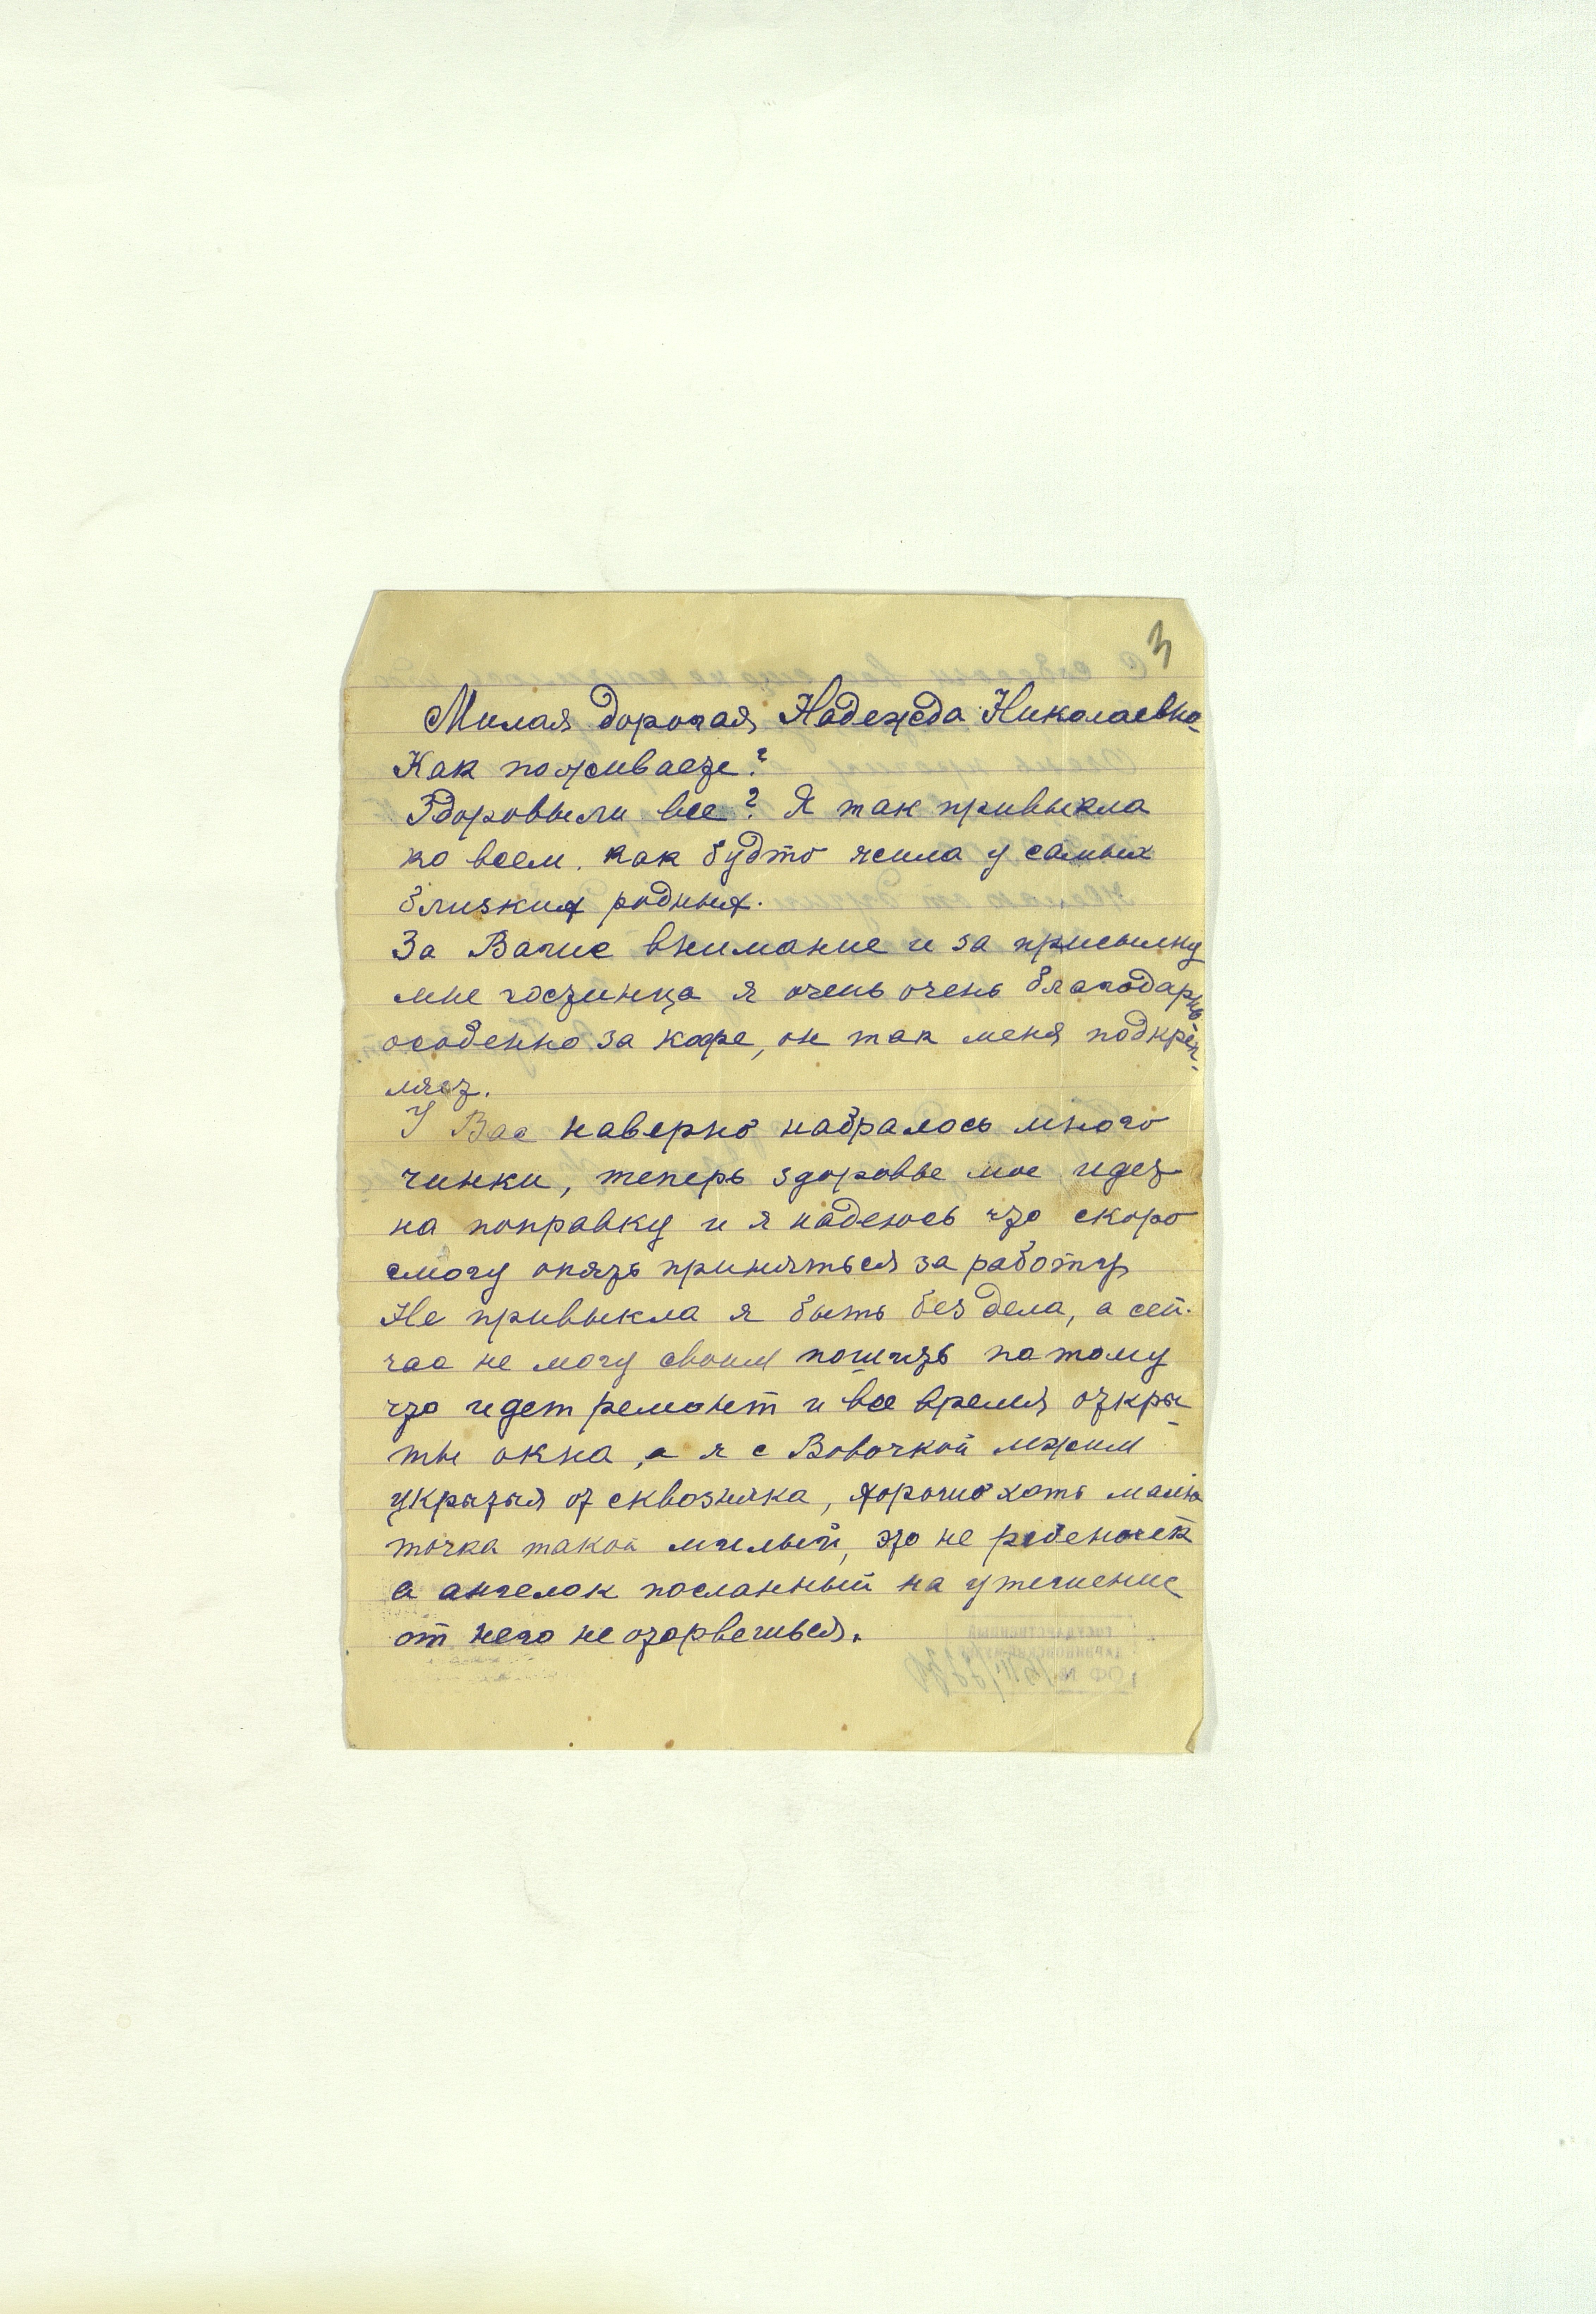 3
Милая дорогая Надежда Николаевна
Как поживаете?
Здоровы ли все? Я так привыкла
ко всем. как будто жила у самых
близких родных.
За Ваше внимание и за присылку
мне гостинца я очень очень благодарна
особенно за кофе, он так меня подкреп-
ляет.
У Вас наверно набралось много
чинки, теперь здоровье мое идет
на поправку и я надеюсь что скоро
смогу опять приняться за работу
Не привыкла я быть без дела, а сей-
час не могу своим пошить потому
что идет ремонт и все время откры-
ты окна, а я с Вовочкой лежим
укрытыя от сквозняка, хорошо хоть малю
точка такой милый, это не ребеночек
а ангелок посланный на утешение
от него не оторвешься.
ГОСУДАРСТВЕННЫЙ